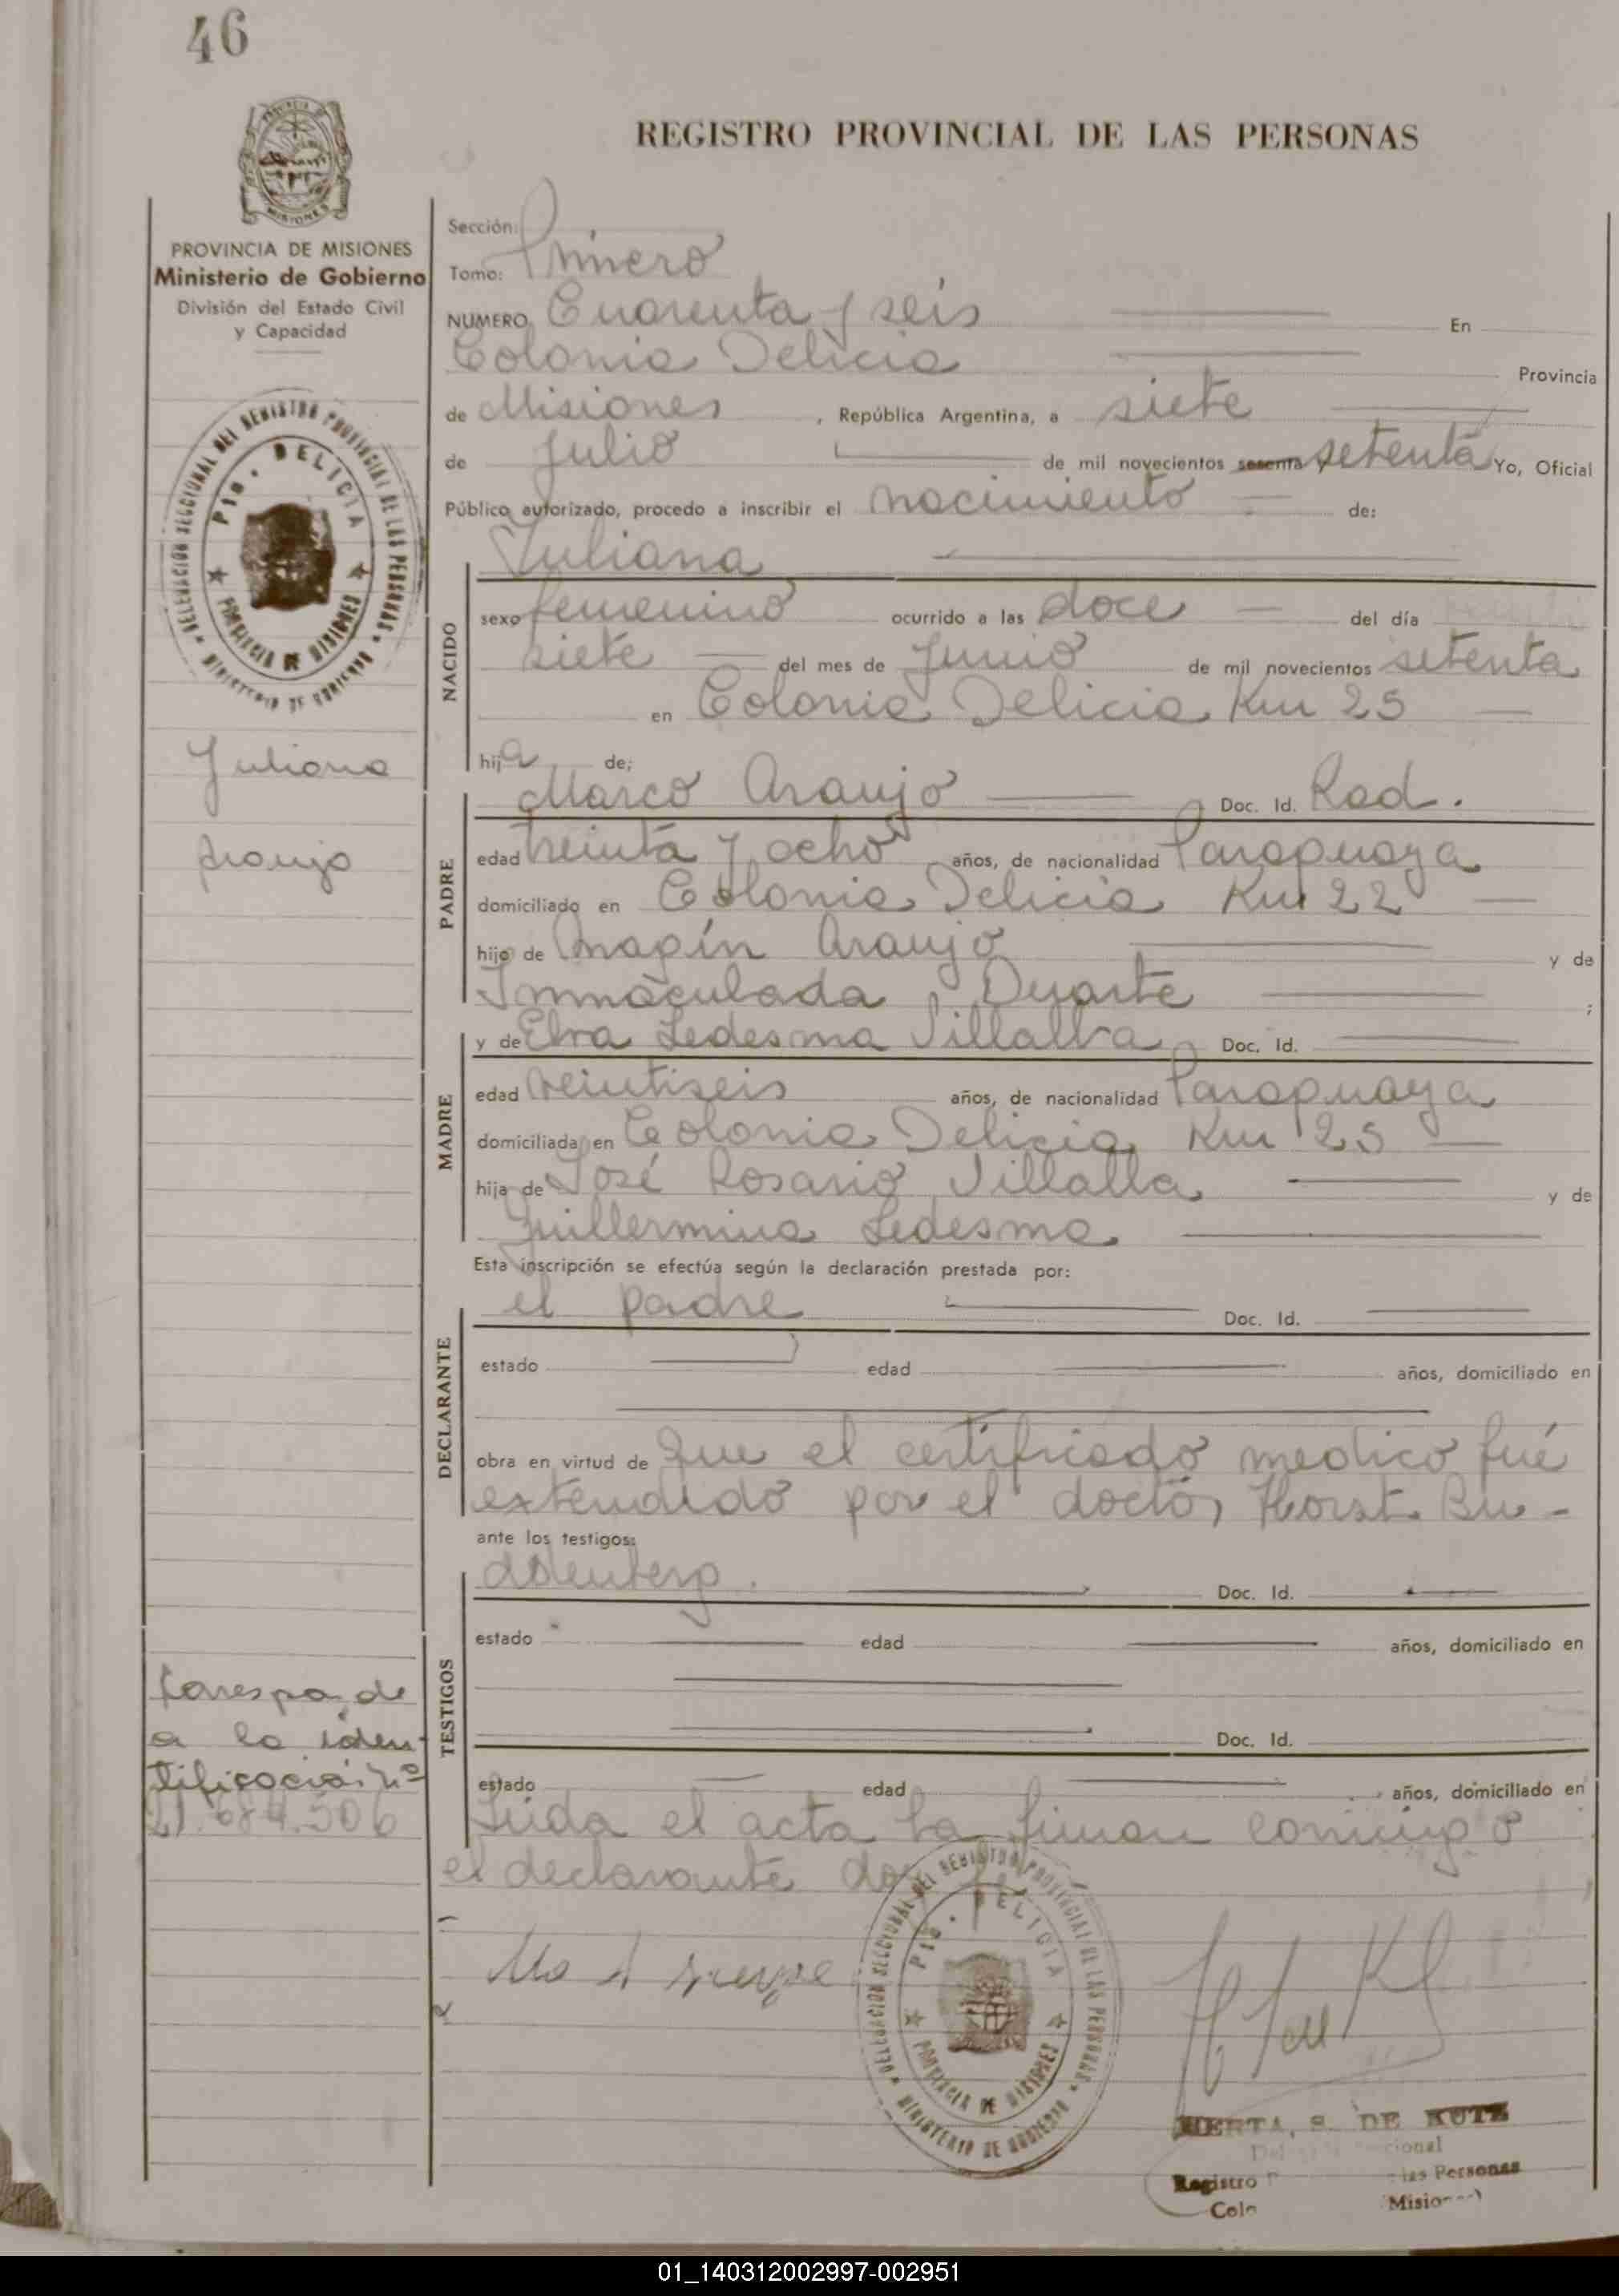 46
REGISTRO PROVINCIAL DE LAS PERSONAS
PROVINCIA DE MISIONES
Ministerio de Gobierno
División del Estado Civil
y Capacidad
Sección:
Tomo: Primero
NUMERO Cuarenta y seis En
Colonia Delicia Provincia
de Misiones , República Argentina, a siete
de Julio de mil novecientos sesenta y setenta Yo, Oficial
Público autorizado, procedo a inscribir el nacimiento de:
Juliana
NACIDO
sexo femenino ocurrido a las doce del día
siete del mes de Junio de mil novecientos setenta
en Colonia Delicia Km 25
hija de;
DELEGACION SECCIONAL DEL REGISTRO PROVINCIAL DE LAS PERSONAS
Pto. DELICIA
PROVINCIA DE MISIONES
MINISTERIO DE GOBIERNO
Juliana
Araujo
PADRE
Marco Araujo Doc. Id. Rad.
edad treinta y ocho años, de nacionalidad Paraguaya
domiciliado en Colonia Delicia Km 22
hijo de Magín Araujo y de
Inmaculada Duarte ;
MADRE
y de Elva Ledesma Villalba Doc. Id.
edad veintiseis años, de nacionalidad Paraguaya
domiciliada en Colonia Delicia Km 25
hija de José Rosario Villalba y de
Guillermina Ledesma
Esta inscripción se efectúa según la declaración prestada por:
DECLARANTE
el padre Doc. Id.
estado edad años, domiciliado en
obra en virtud de que el certificado medico fué
extendido por el doctor Horst. Bu-
ante los testigos:
TESTIGOS
Doc. Id.
estado edad años, domiciliado en
Doc. Id.
estado edad años, domiciliado en
Leída el acta la firman conmigo
el declarante doy
Corresponde
a la iden-
tificación nº
21.684.506
DELEGACION SECCIONAL DEL REGISTRO PROVINCIAL DE LAS PERSONAS
Pto. DELICIA
PROVINCIA DE MISIONES
MINISTERIO DE GOBIERNO
HERTA, S. DE KUTZ
Registro las Personas
01_140312002997-002951